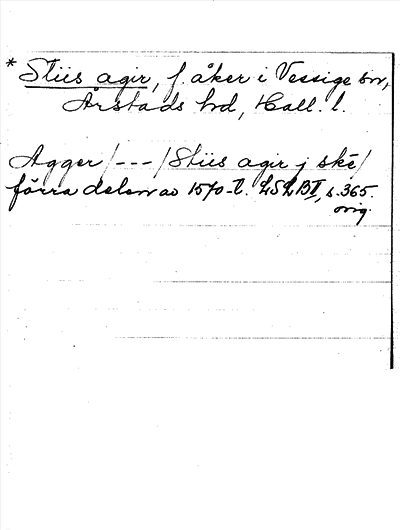 * Stiis agir, f. åker i Vessige sn,
Årstads hd, Hall. l.
Agger /---/ Stiis agir j ske/
förra delen av 1570-t. LSLB II, s. 365.
orig.